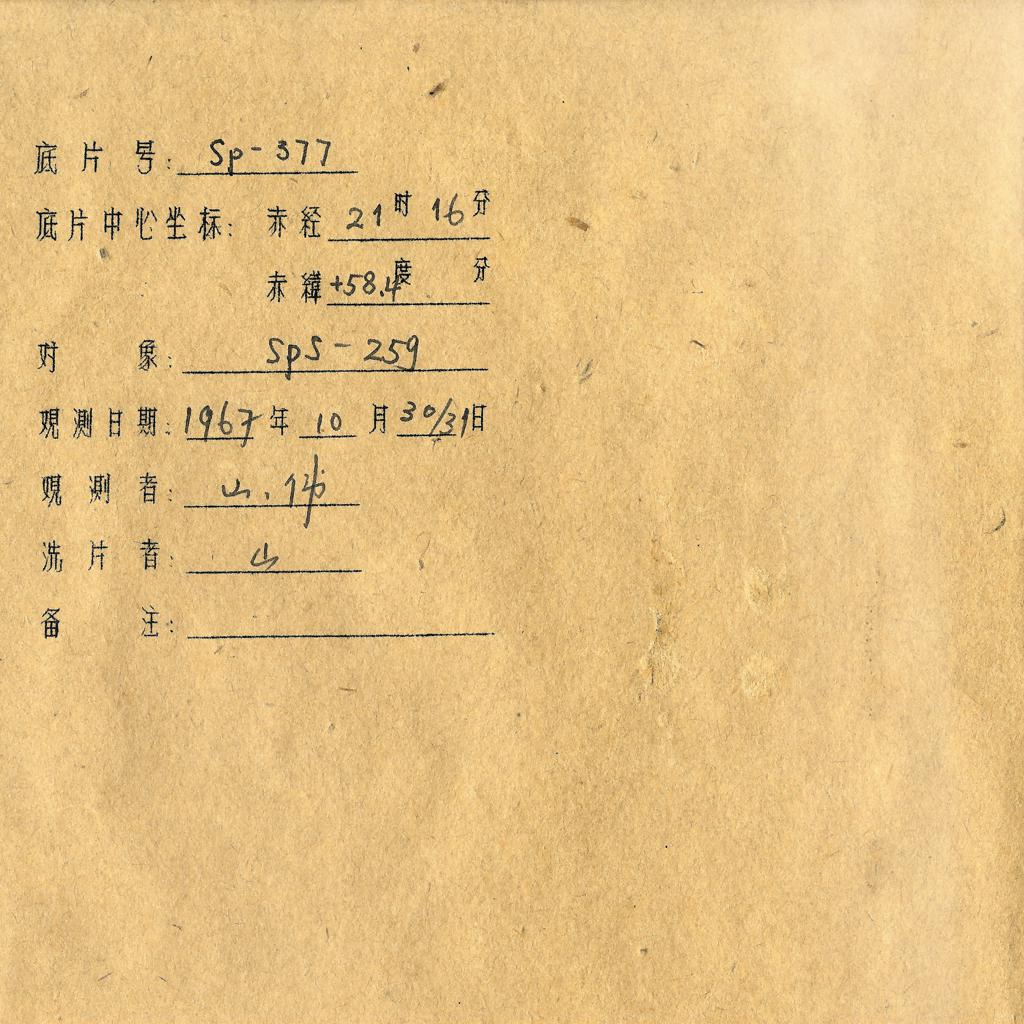 底片号: Sp-377
底片中心坐标: 赤经 21时 16分
赤緯 +58.4度 分
对象: SpS-259
观测日期: 1967年 10月 30/31日
观测者: 山.
洗片者: 山
备注: